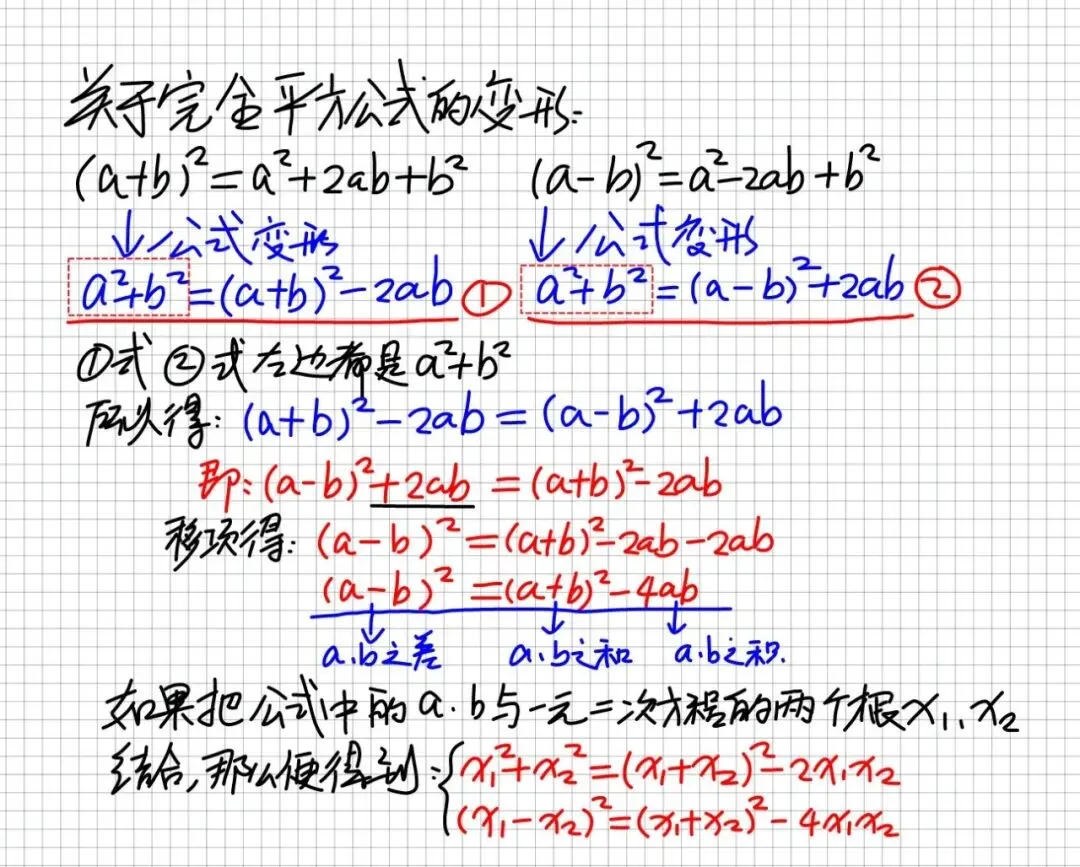 关于完全平方公式的变形:
(a+b)²=a²+2ab+b² (a-b)²=a²-2ab+b²
↓公式变形 ↓公式变形
a²+b²=(a+b)²-2ab ① a²+b²=(a-b)²+2ab ②
①式②式左边都是a²+b²
所以得:(a+b)²-2ab=(a-b)²+2ab
即:(a-b)²+2ab=(a+b)²-2ab
移项得:(a-b)²=(a+b)²-2ab-2ab
(a-b)²=(a+b)²-4ab
a.b之差 a.b之和 a.b之积.
如果把公式中的a.b与一元二次方程的两个根x₁、x₂
结合,那么便得到:{x₁²+x₂²=(x₁+x₂)²-2x₁x₂
(x₁-x₂)²=(x₁+x₂)²-4x₁x₂